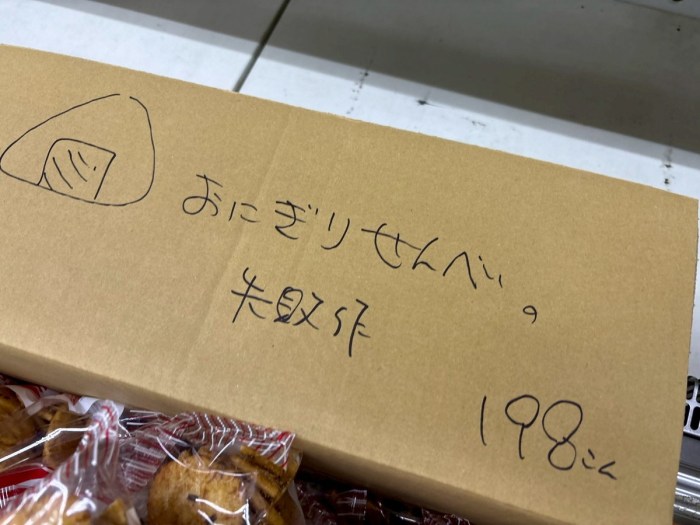 おにぎりせんべい。
失敗作
198こん